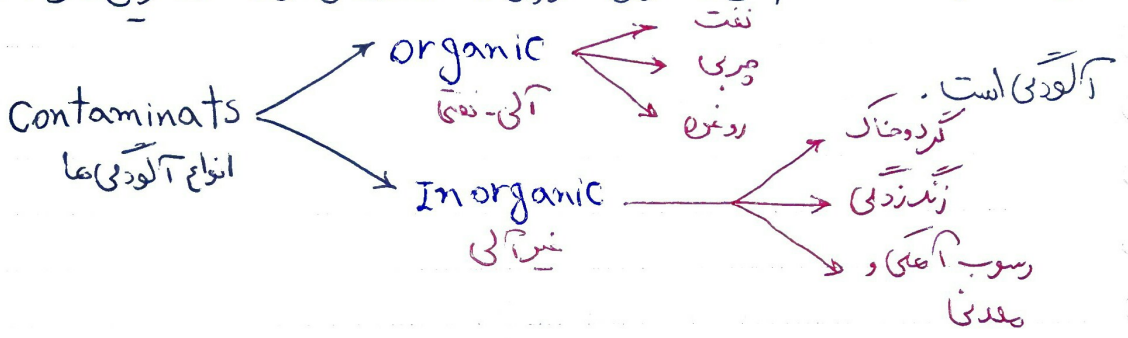 آلودگی است.
Contaminats
انواع آلودگی ها
organic
آلی - نفتی
نفت
چربی
روغن
Inorganic
غیر آلی
گرد و خاک
زنگ زدگی
رسوب آهکی و
معدنی